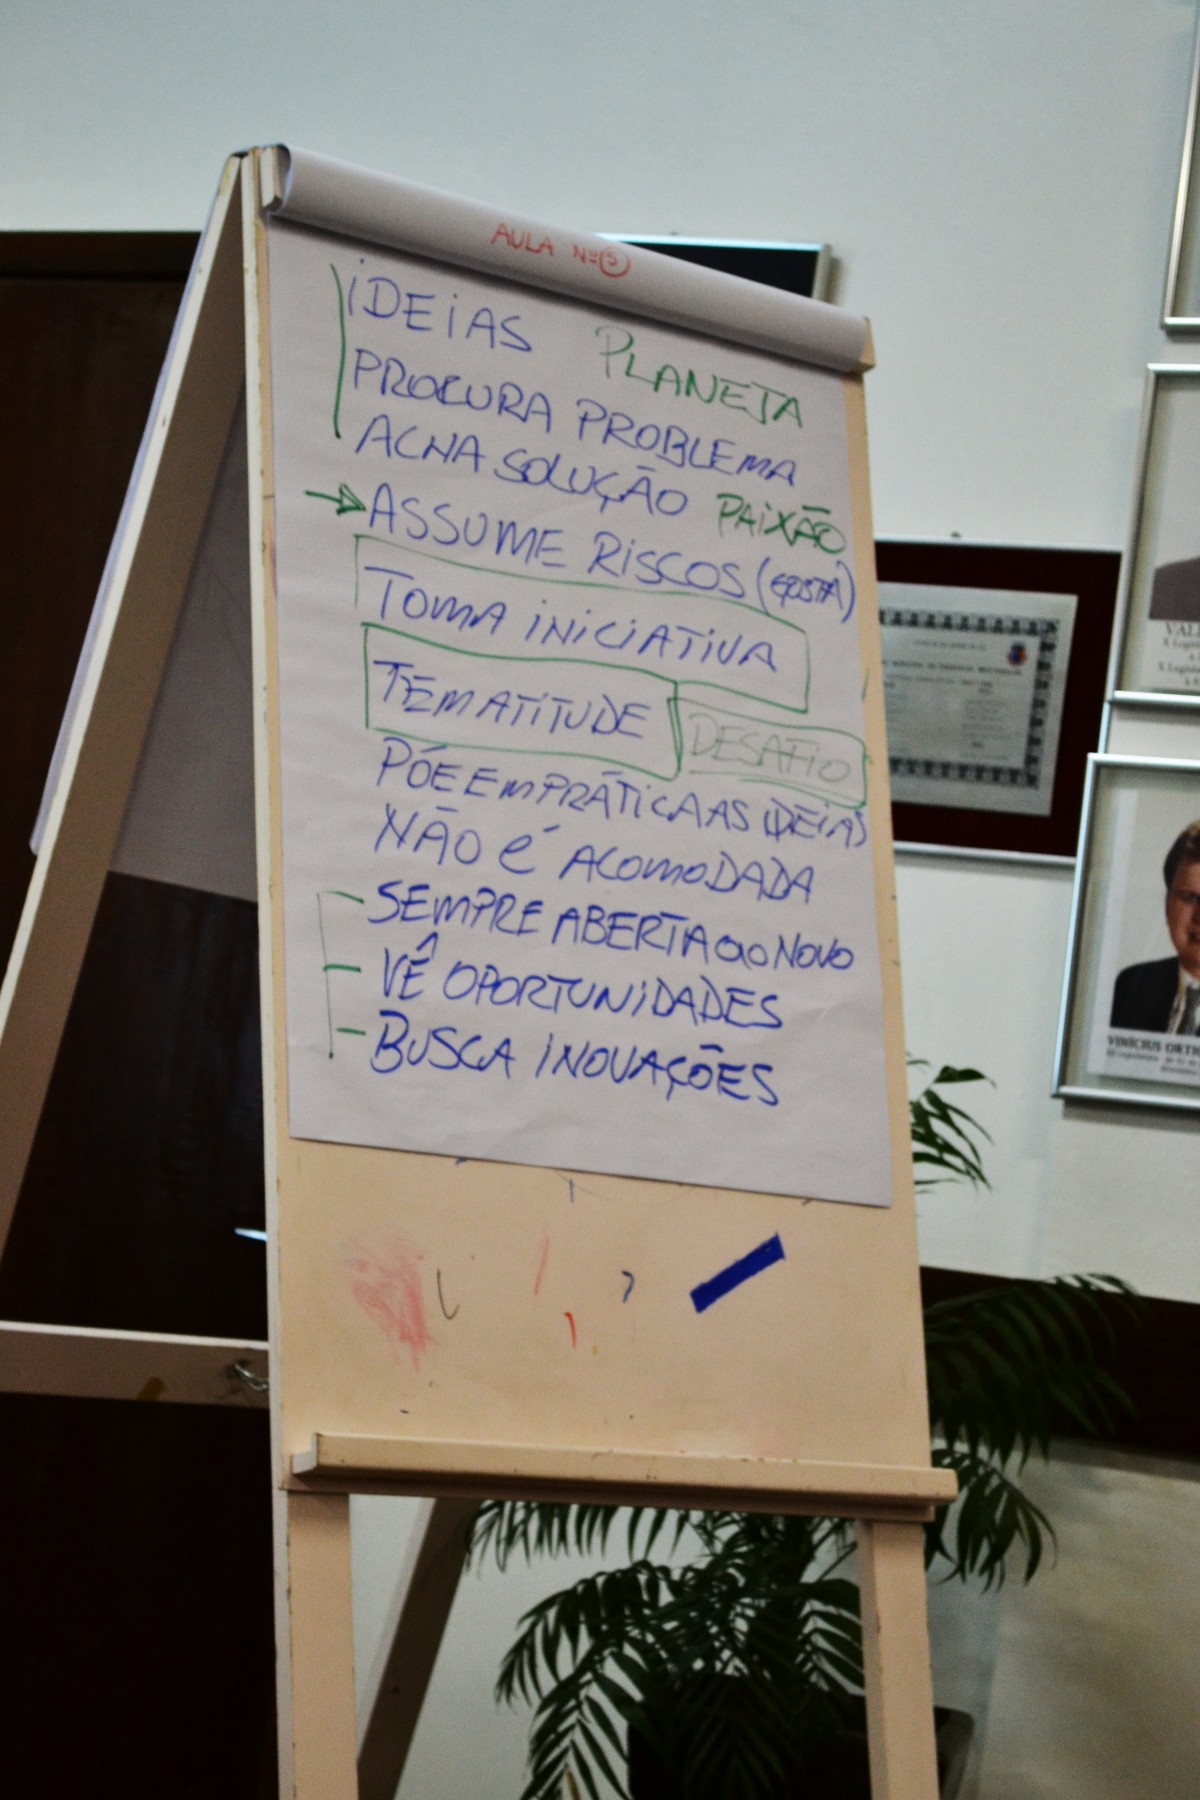 AULA Nº 5
IDEIAS PLANETA
PROCURA PROBLEMA
ACHA SOLUÇÃO PAIXÃO
→ ASSUME RISCOS (GOSTA)
TOMA INICIATIVA
TEM ATITUDE DESAFIO
PÕE EM PRÁTICA AS IDEIAS
NÃO É ACOMODADA
- SEMPRE ABERTA ao NOVO
- VÊ OPORTUNIDADES
- BUSCA INOVAÇÕES
VINÍCIUS